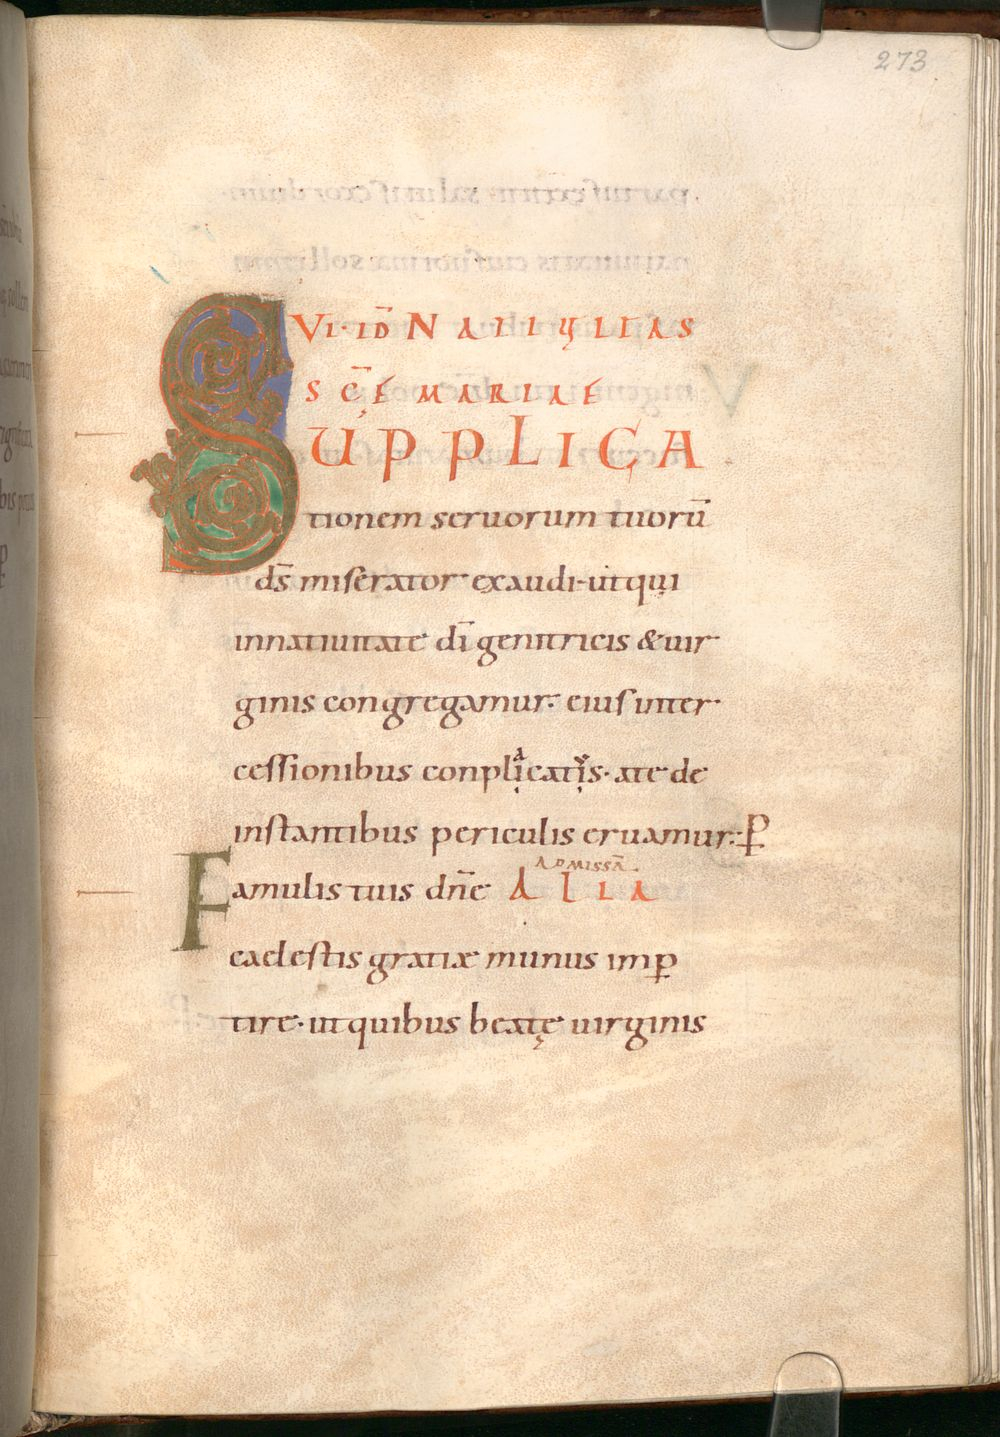 273
VI·ID̄ NATIVITAS
SC̄Ę MARIAE
SUPPLICA
tionem seruorum tuorū
ds̄ miserator exaudi· ut qui
in natiuitate dī genitricis & uir
ginis congregamur· eius inter
cessionibus conplicatis· a te de
instantibus periculis eruamur·: P
AD MISSĀ
Famulis tuis dn̄e ALIA
caelestis gratiæ munus imp
tire· ut quibus beatę uirginis